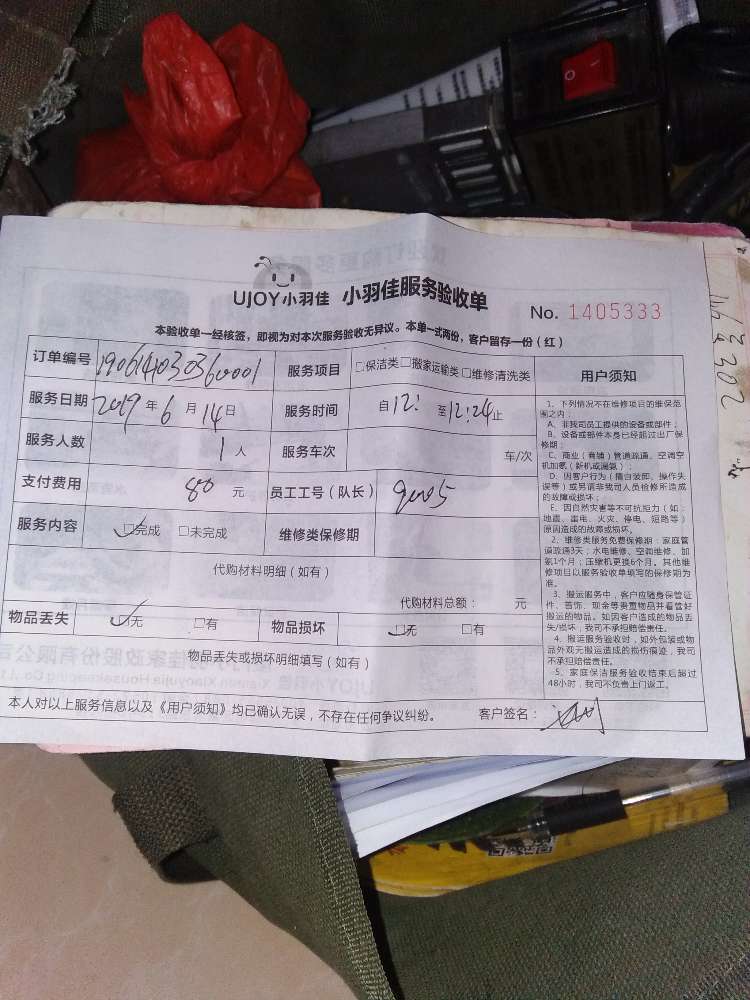 UJOY小羽佳 小羽佳服务验收单
No. 1405333
本验收单一经核签，即视为对本次服务验收无异议。本单一式两份，客户留存一份（红）
订单编号 190614030360001 服务项目 □保洁类□搬家运输类□维修清洗类
服务日期 2019年6月14日 服务时间 自12: 至12:24止
服务人数 1人 服务车次 车/次
支付费用 80元 员工工号（队长）
服务内容 ☑完成 □未完成 维修类保修期
代购材料明细（如有）
代购材料总额： 元
物品丢失 ☑无 □有 物品损坏 ☑无 □有
物品丢失或损坏明细填写（如有）
用户须知
1、下列情况不在维修项目的维保范
围之内：
A、非我司员工提供的设备或部件；
B、设备或部件本身已经超过出厂保
修期；
C、商业（商铺）管道疏通、空调空
机加氨（新机或漏氨）；
D、因客户行为（擅自装卸、操作失
误等）或另请非我司人员检修所造成
的故障或损坏；
E、因自然灾害等不可抗拒力（如：
地震、雷电、火灾、停电、短路等）
原因造成的故障或损坏。
2、维修类服务免费保修期：家庭管
道疏通3天；水电维修、空调维修、加
氨1个月；压缩机更换6个月。其他维
修项目以服务验收单填写的保修期为
准。
3、搬运服务中，客户应随身保管证
件、首饰、现金等贵重物品并看管好
搬运的物品。如因客户造成的物品丢
失/损坏，我司不承担赔偿责任。
4、搬运服务验收时，如外包装或物
品外观无搬运造成的损伤痕迹，我司
不承担赔偿责任。
5、家庭保洁服务验收结束后超过
48小时，我司不负责上门返工。
本人对以上服务信息以及《用户须知》均已确认无误，不存在任何争议纠纷。 客户签名：